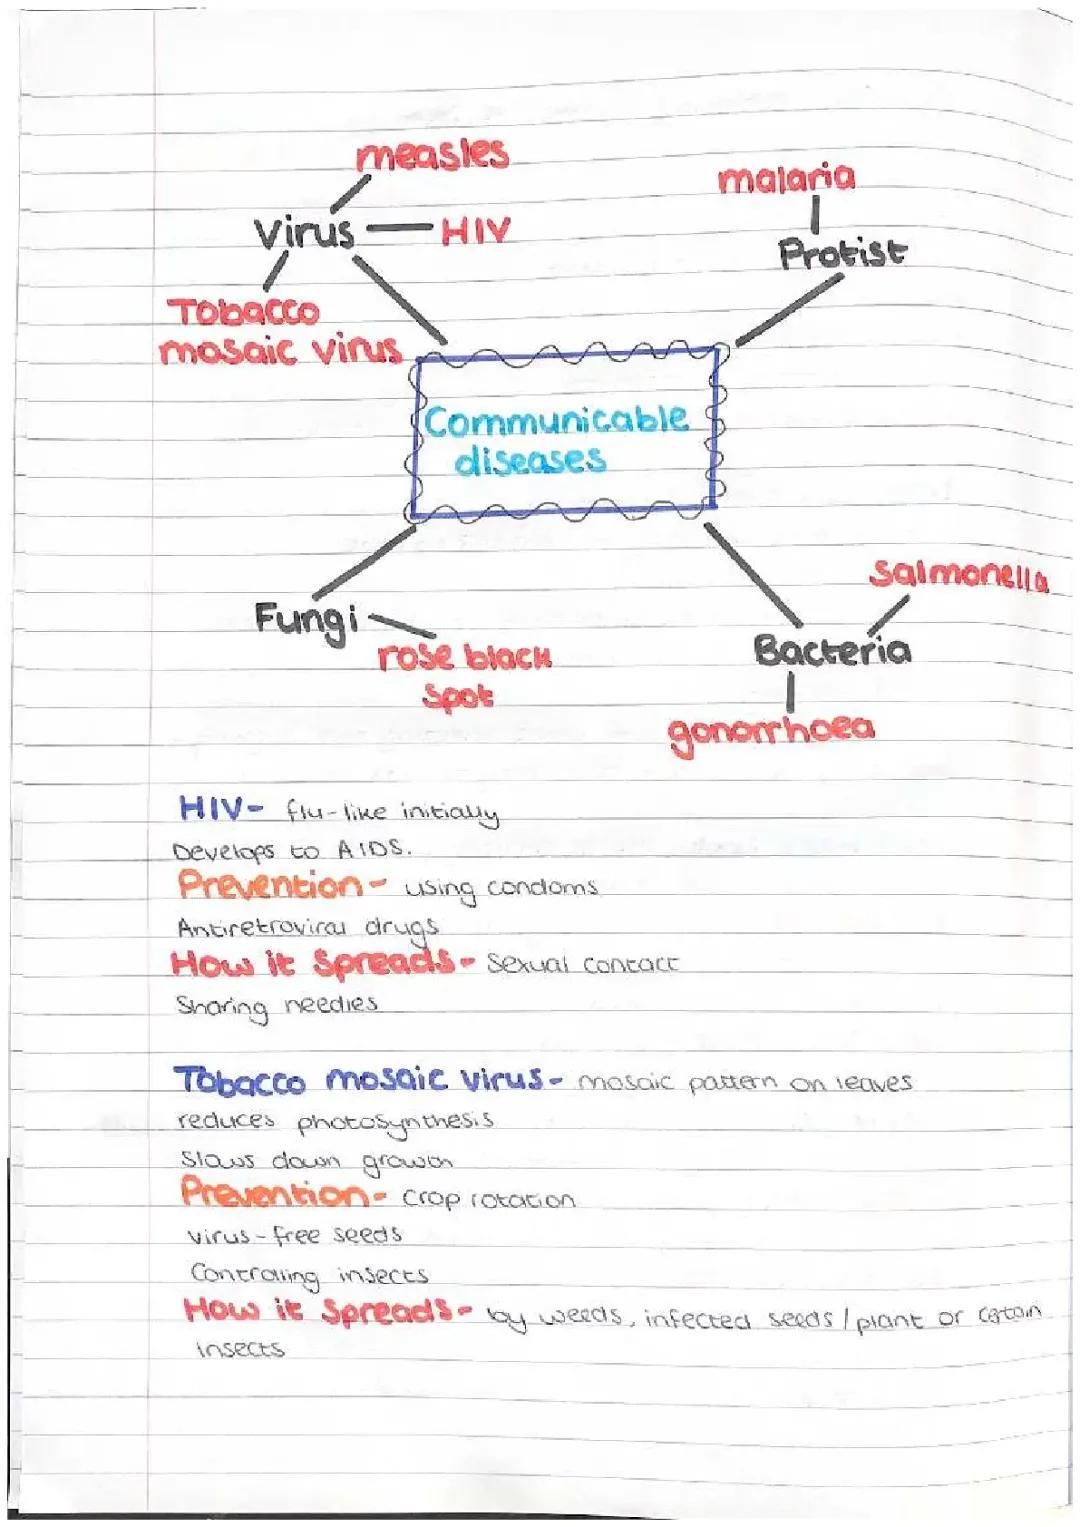 measles
malaria
Virus
HIV
Protist
Tobacco
mosaic virus
Communicable
diseases
Salmonella
Fungi
Bacteria
rose black
Spot
gonorrhoea
HIV- flu-like initially
Develops to AIDS.
Prevention- using condoms
Antiretroviral drugs
How it Spreads- Sexual contact
Sharing needles
Tobacco mosaic virus- mosaic pattern on leaves
reduces photosynthesis
Slows down growth
Prevention- crop rotation
virus-free seeds
Controlling insects
How it Spreads- by weeds, infected seeds/plant or certain
insects